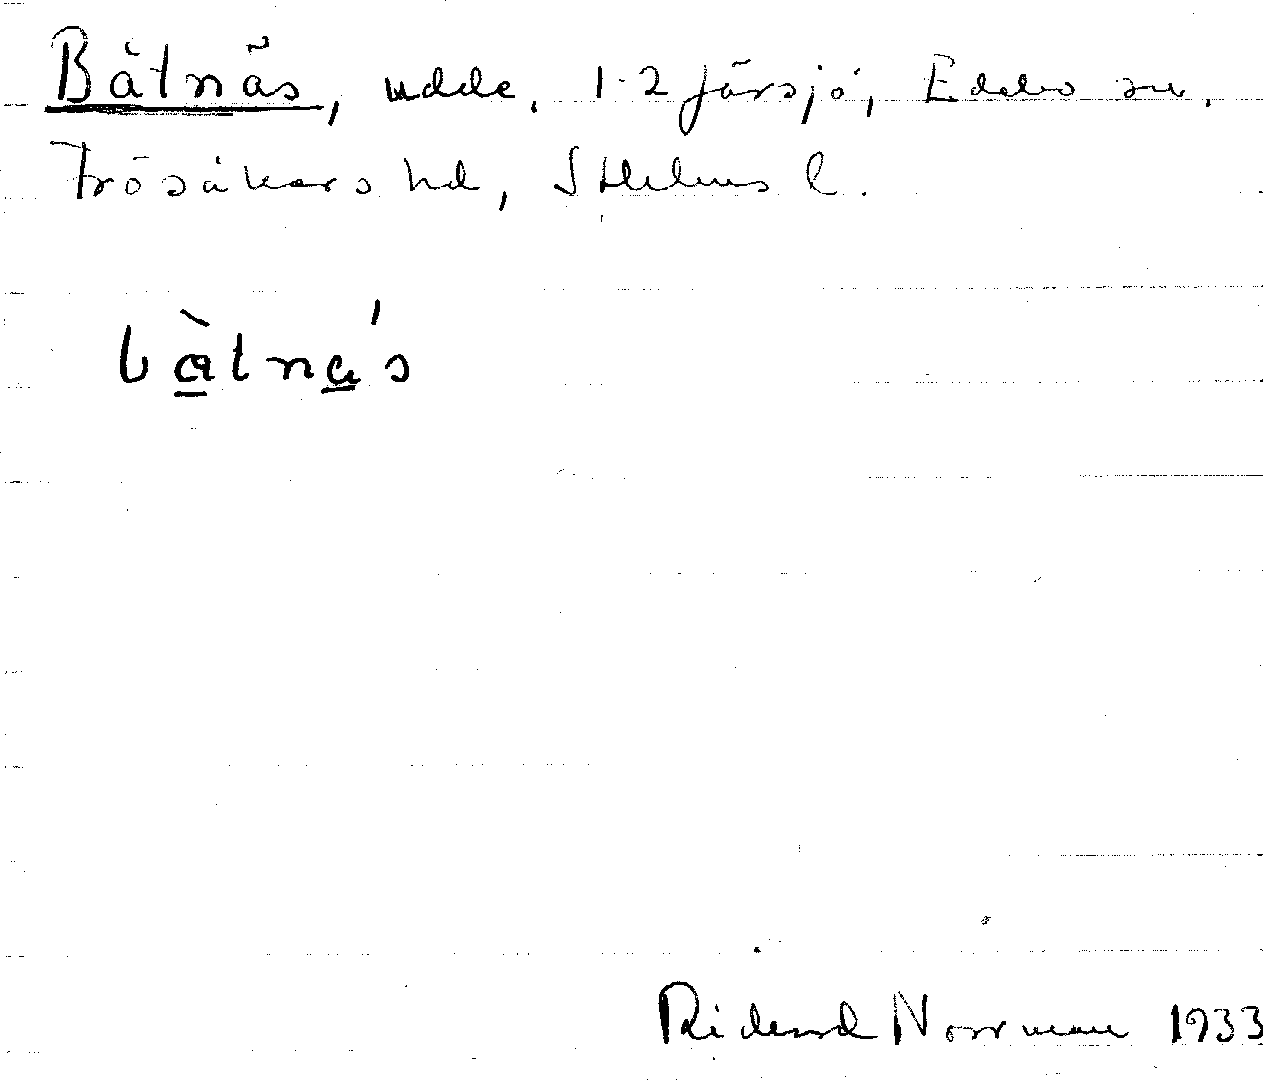 Båtnäs, udde, 1-2 Järsjö, Edebo sn,
Frösåkers hd, Sthlms l.
bàtná̱s
Rickard Norrman 1933